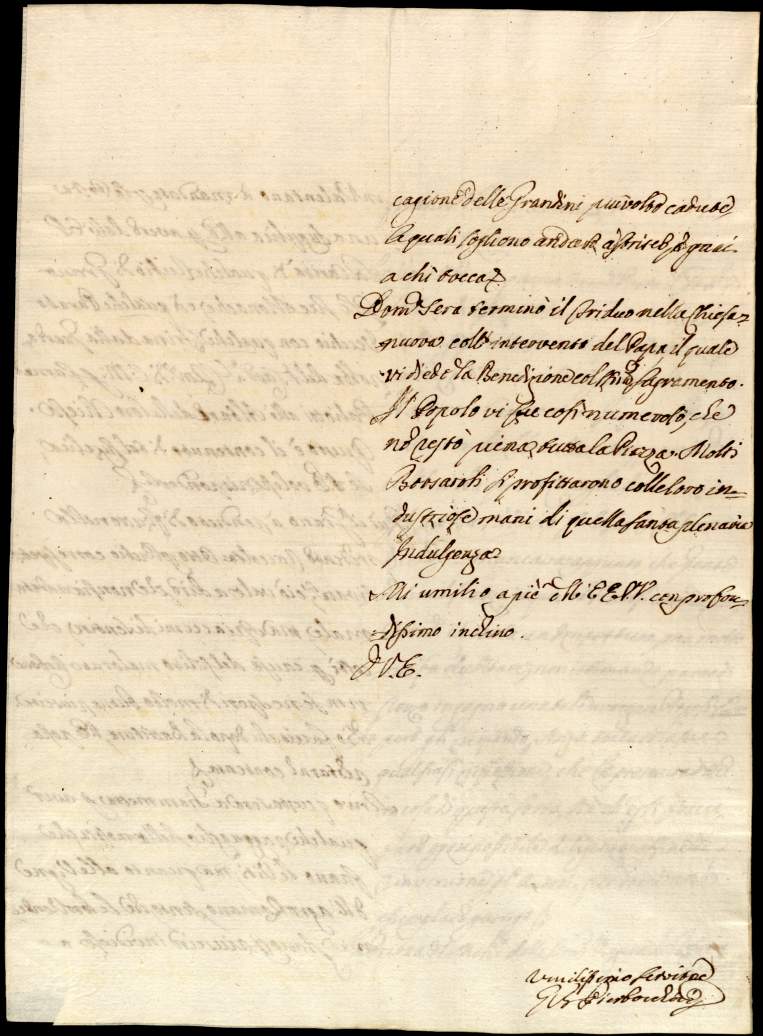 cagione delle Grandini più volte cadute,
le quali sogliono andare a strisce, e guai
a chi tocca.
Dom.ca sera terminò il Triduo nella Chiesa
nuova coll'intervento del Papa, il quale
vi diede la Benedizione col SSmo Sagramento.
Il Popolo vi fue così numeroso, che
nõ restò piena tutta la Piazza. Molti
Borsaroli si profittarono colle loro in=
dustriose mani di quella santa plenaria
Indulgenza.
Mi umilio a piè dell' E.V. con profon=
dissimo inchino.
D. V. E.
Umilissimo servitore